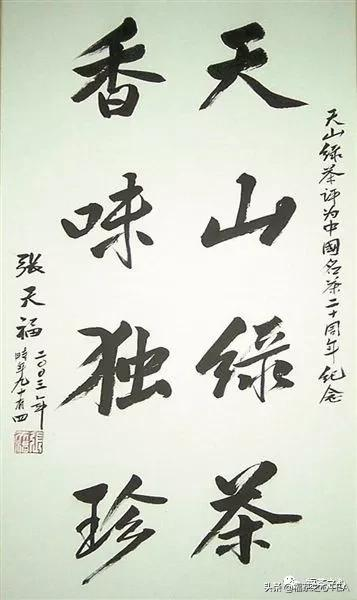 天山绿茶评为中國名茶二十周年纪念
天山绿茶
香味独珍
张天福
二〇〇三年
时年九十有四
头条@福茶之心TEA